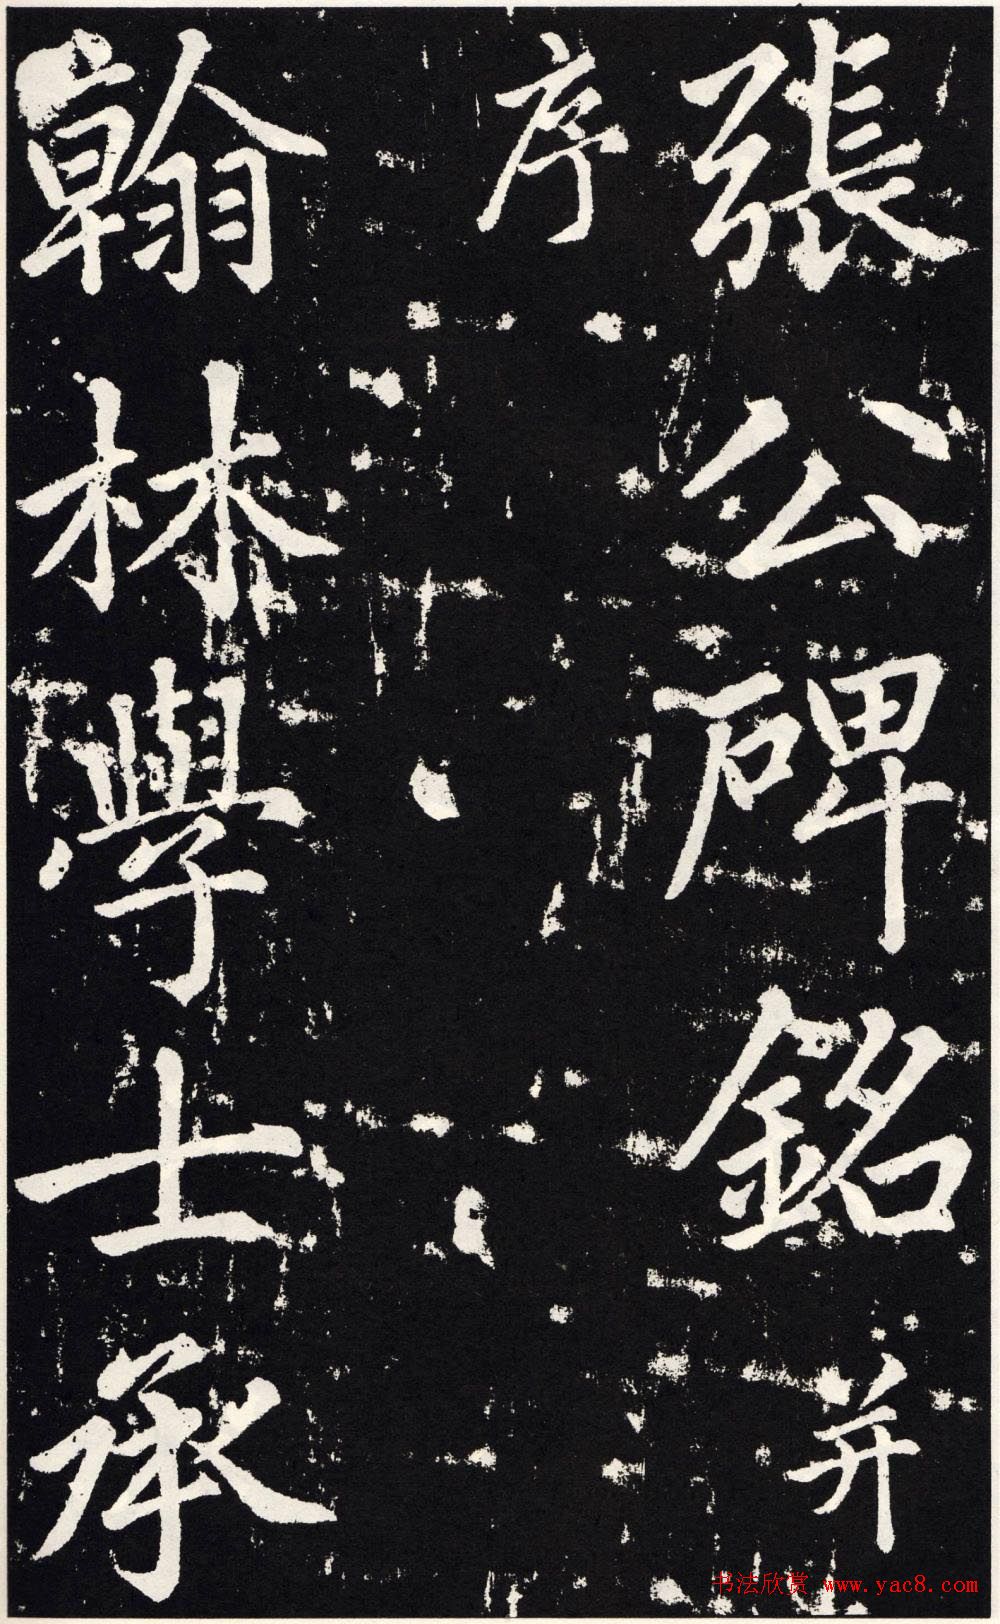 張公碑銘并
序
翰林學士承
书法欣赏 www.yac8.com